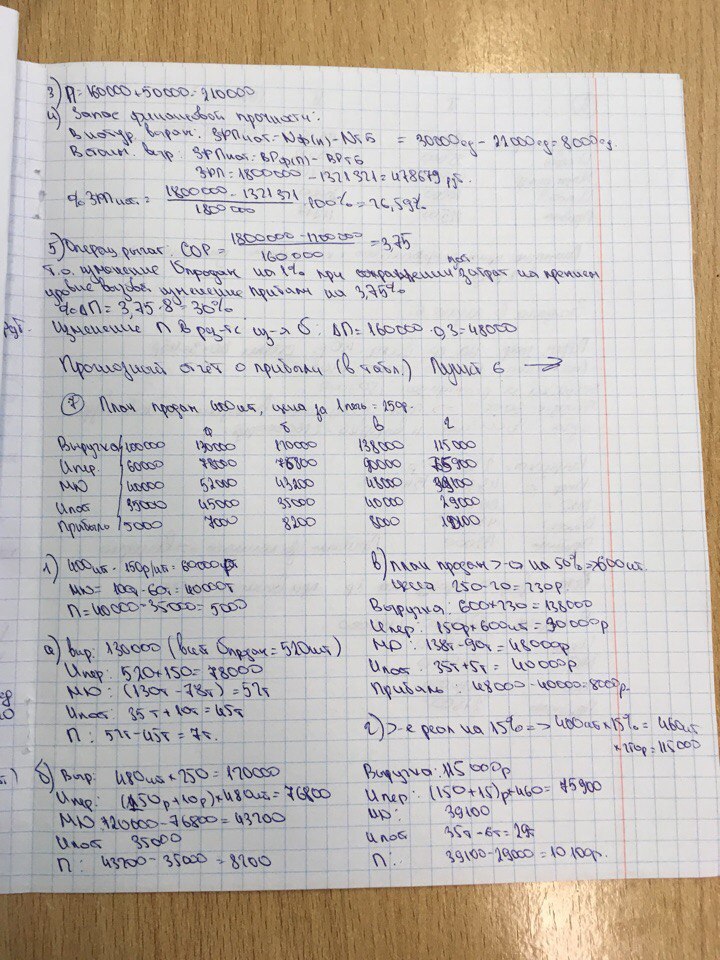 3) П = 160000 + 50000 = 210000
4) Запас финансовой прочности:
В натур. выраж: ЗРПнат = Nф(п) - Nтб = 30000ед - 22000ед = 8000ед.
В стоим. выр: ЗРПнат = ВРф(п) - ВРтб
ЗРП = 1800000 - 1321321 = 478679 руб.
% ЗРПнат = (1800000 - 1321321) / 1800000 · 100% = 26,59%
5) Операц рычаг: СОР = (1800000 - 1200000) / 160000 = 3,75
т.о. изменение Vпродаж на 1% при пост. затрат на прежнем
уровне изменение прибыли на 3,75%
%ΔП = 3,75 · 8 = 30%
изменение П в рез-те из-я б: ΔП = 160000 · 0,3 = 48000
Прогнозный отчёт о прибыли (в табл.) Пункт 6 →
7 План продаж 400шт, цена за = 250р.
а б в г
Выручка 100000 130000 120000 138000 115000
Ипер. 60000 78000 76800 90000 75900
МД 40000 52000 43200 48000 39100
Ипост 35000 45000 35000 40000 29000
Прибыль 5000 7000 8200 8000 10100
1) 400шт · 150р/шт = 60000
МД = 100т - 60т = 40000т
П = 40000 - 35000 = 5000
а) выр: 130000 (Vпродаж = 520шт)
Ипер: 520 + 150 = 78000
МД: (130т - 78т) = 52т
Ипост: 35т + 10т = 45т
П: 52т - 45т = 7т.
б) Выр: 480шт × 250 = 120000
Ипер: (150р + 10р) × 480шт = 76800
МД 120000 - 76800 = 43200
Ипост 35000
П: 43200 - 35000 = 8200
в) план продаж >-ся на 50% => 600шт.
цена 250 - 20 = 230р.
Выручка: 600 + 230 = 138000
Ипер: 150р × 600шт = 90000р
МД: 138т - 90т = 48000р
Ипост: 35т + 5т = 40000р
Прибыль: 48000 - 40000 = 8000р.
г) >-е реал на 15% => 400шт × 15% = 460шт
× 250р = 115000
Выручка: 115000р
Ипер: (150 + 15)р × 460 = 75900
МД: 39100
Ипост 35т - 6т = 29т
П: 39100 - 29000 = 10100р.